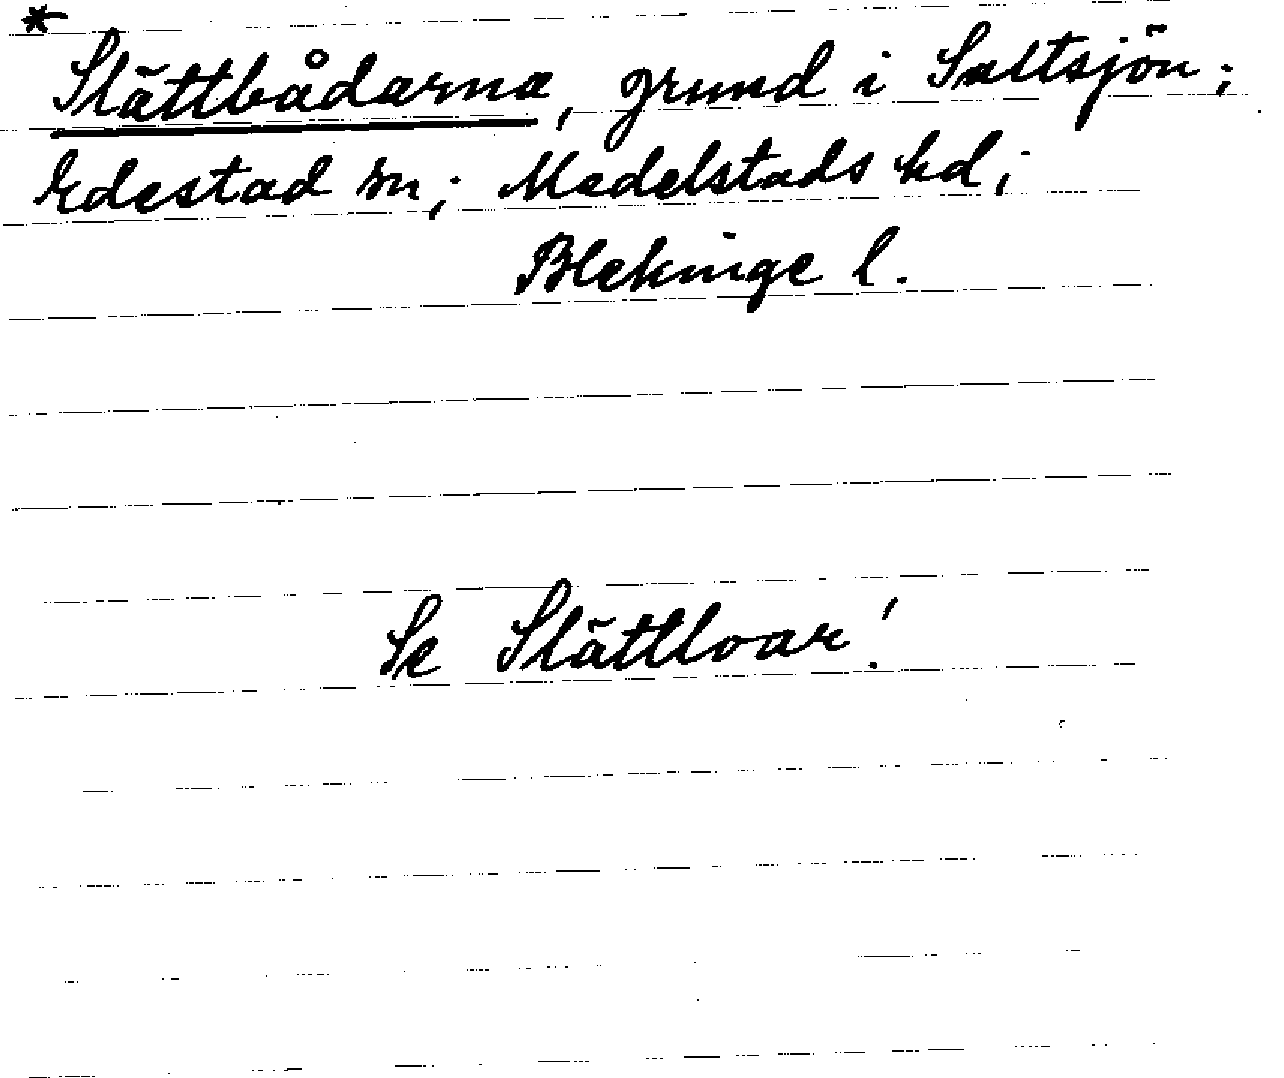 * Slättbådarna, grund i Saltsjön;
Edestad sn; Medelstads hd;
Blekinge l.
Se Slättloar!